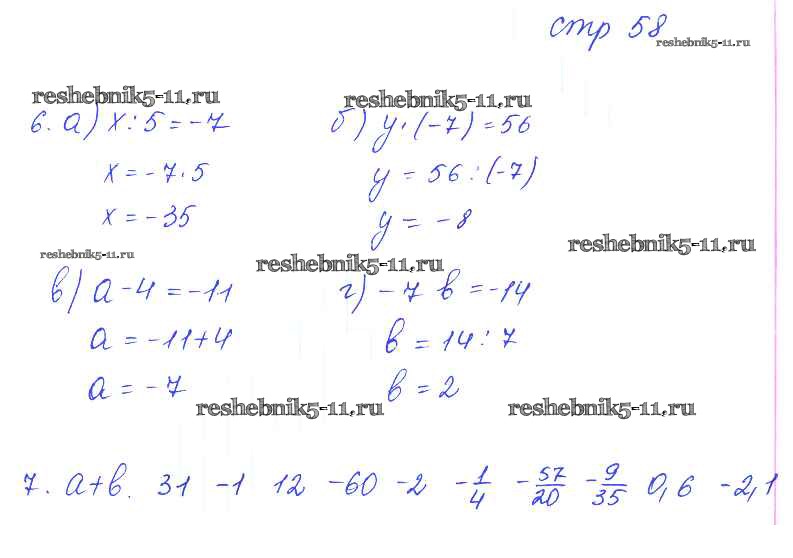 стр 58
reshebnik5-11.ru
reshebnik5-11.ru reshebnik5-11.ru
6. а) x : 5 = -7 б) y · (-7) = 56
x = -7 · 5 y = 56 : (-7)
x = -35 y = -8
reshebnik5-11.ru reshebnik5-11.ru reshebnik5-11.ru
в) a - 4 = -11 г) -7 в = -14
a = -11+4 в = 14 : 7
a = -7 в = 2
reshebnik5-11.ru reshebnik5-11.ru
7. a+в. 31 -1 12 -60 -2 -1/4 -57/20 -9/35 0,6 -2,1